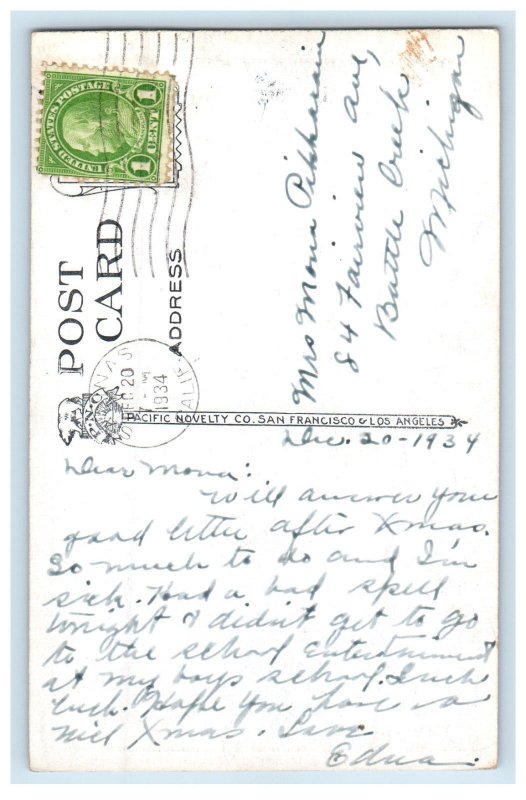 UNITED STATES POSTAGE
1 1
POST
CARD
ADDRESS
DEC 20
1934
CALIF.
P.N.C.
PACIFIC NOVELTY CO. SAN FRANCISCO & LOS ANGELES
Mrs Mona
84 Fairview Ave,
Battle Creek
Michigan
Dec. 20-1934
Dear Mona:
Will answer your
good letter after Xmas.
So much to do and I'm
sick. Had a bad spell
tonight & didn't get to go
to the school Entertainment
at my boys school. Such
luck. Hope you have a
nice Xmas. Love
Edna.